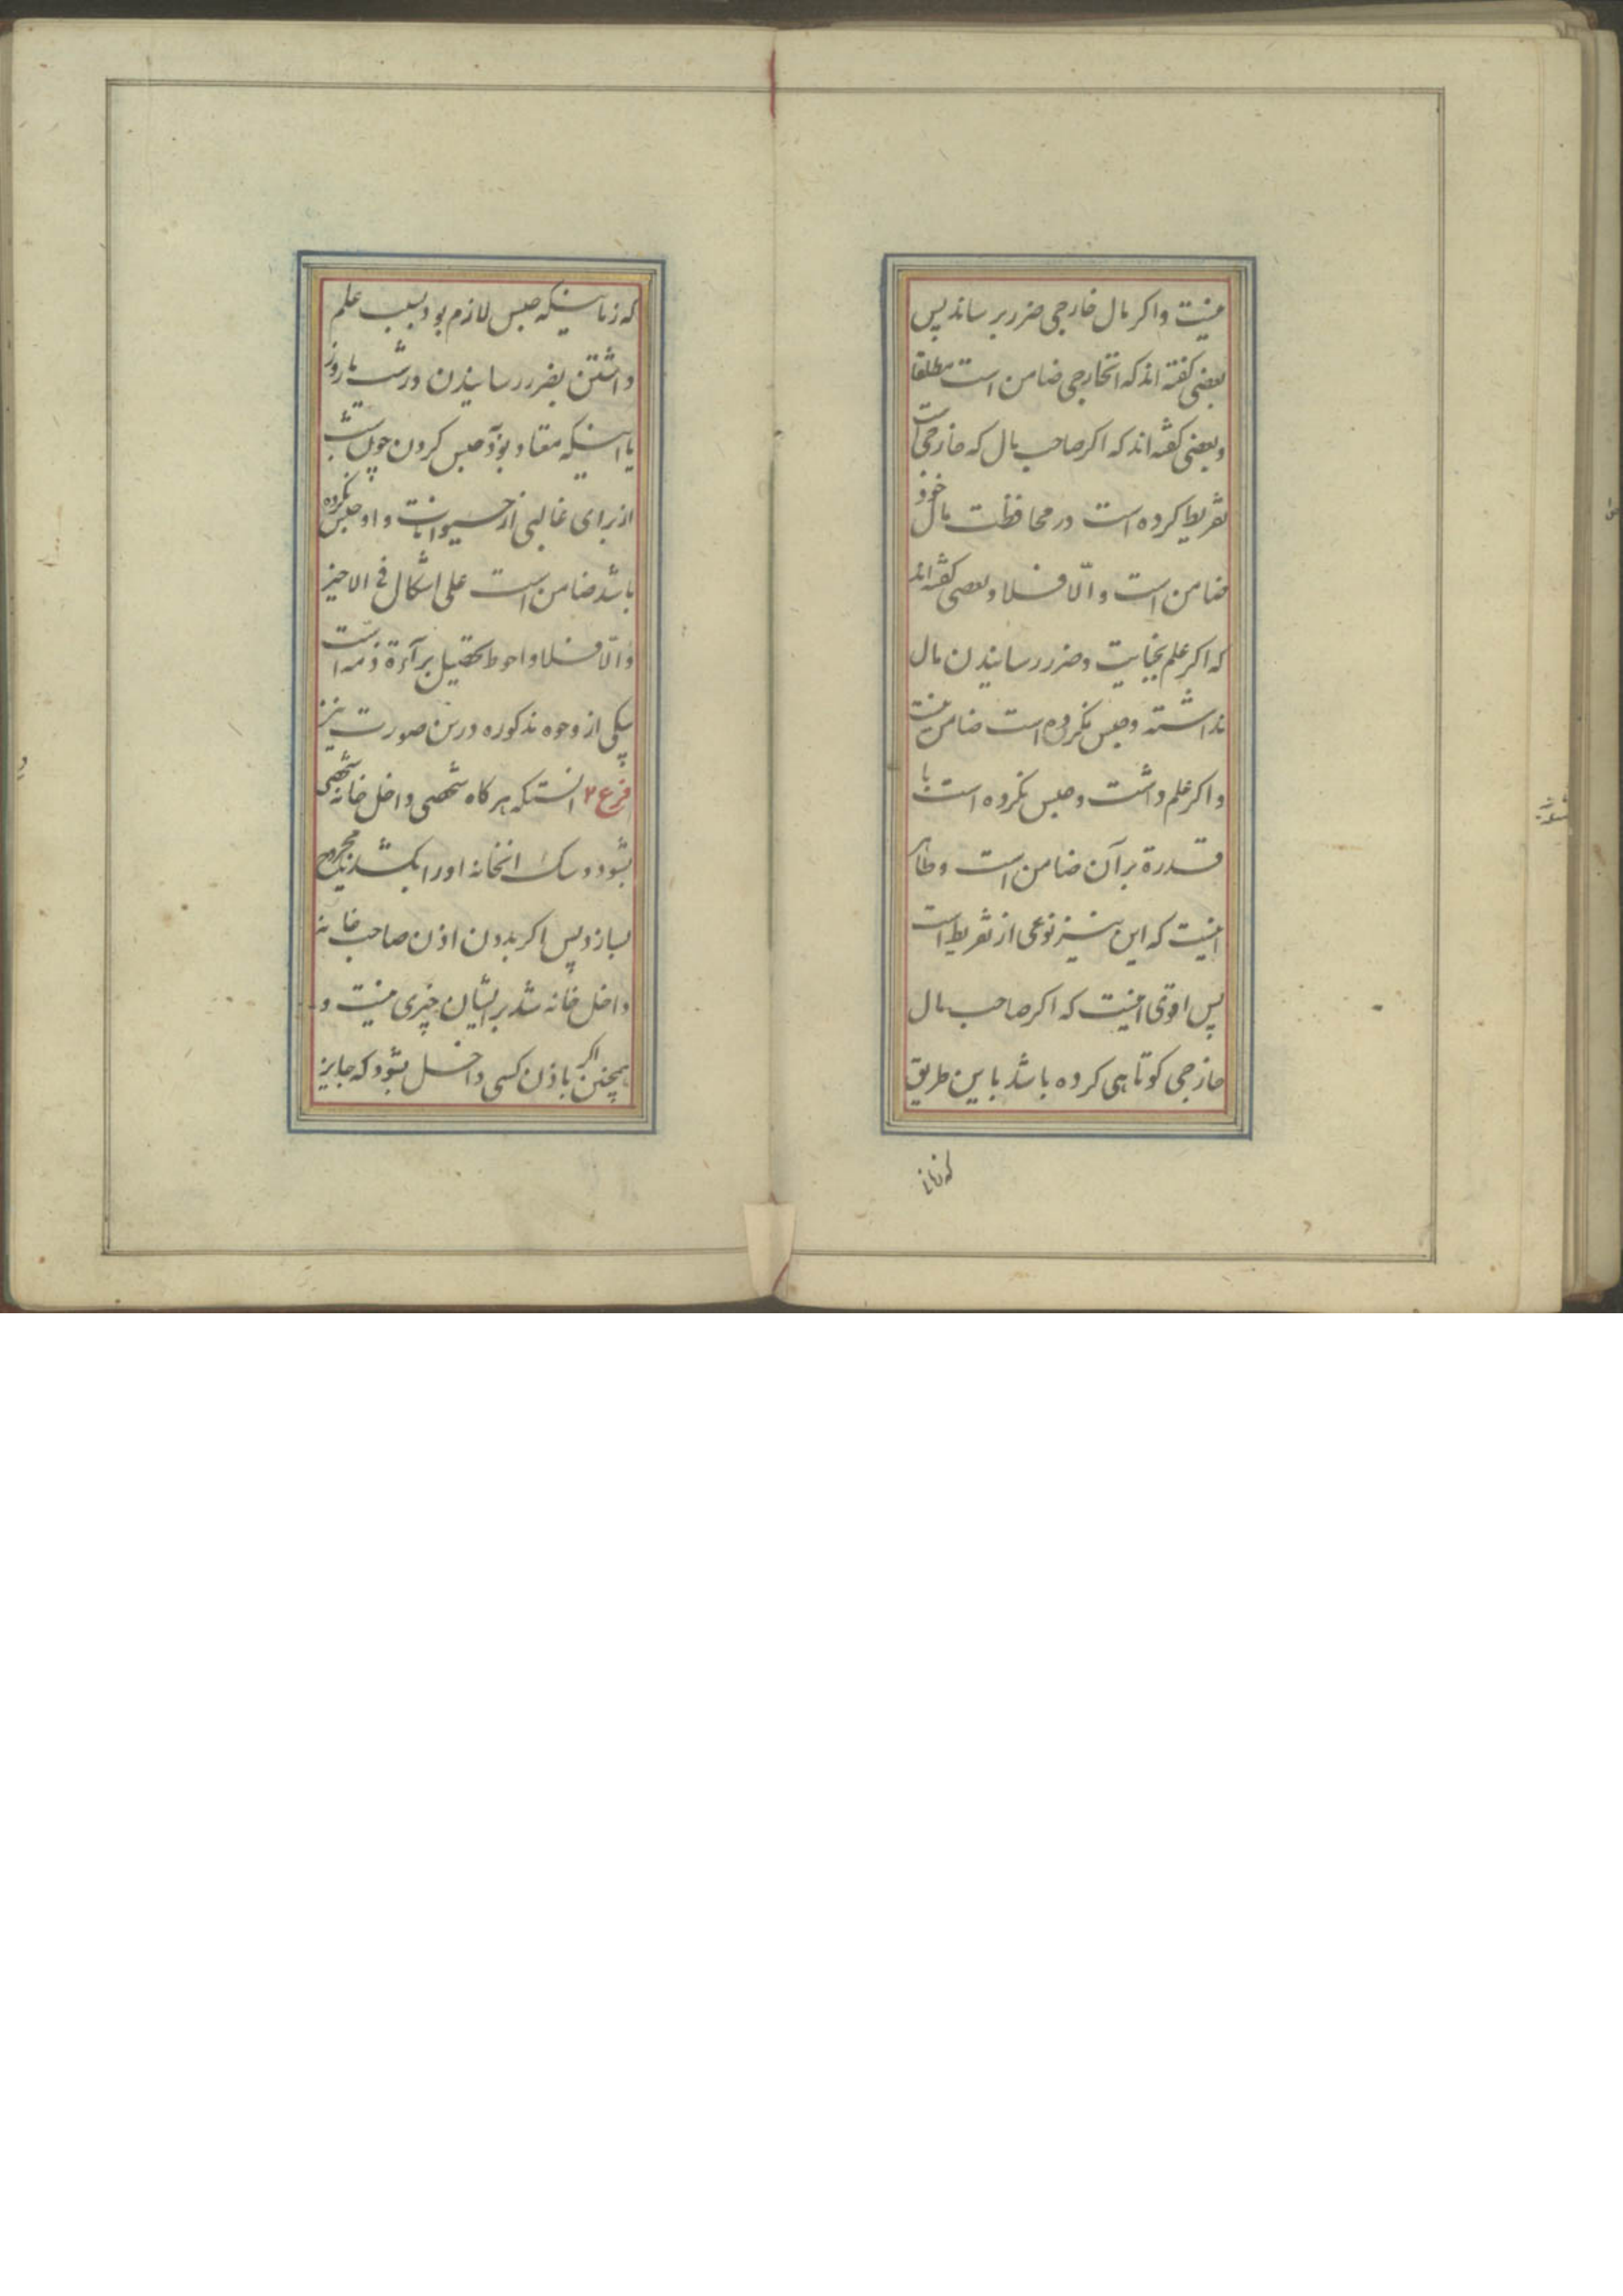 نیست و اکر مال خارجی ضرر برساند پس
بعضی کفته اند که انخارجی ضامن است مطلقا
و بعضی کفته اند که اکر صاحب مال که خارجی است
تفریط کرده است در محافظت مال خود
ضامن است و الّا فلا و بعضی کفته اند
که اکر علم بجنایت و ضرر رسانیدن مال
نداشته و حبس نکرده است ضامن نیست
و اکر علم داشت و حبس نکرده است با
قدرة بر آن ضامن است و ظاهر
اینست که این نیز نوعی از تفریط است
پس اقوی اینست که اکر صاحب مال
خارجی کوتاهی کرده باشد باین طریق
که زمانی
که زمانیکه حبس لازم بود بسبب علم
داشتن بضرر رسانیدن در شب یا روز
یا اینکه معتاد بود حبس کردن چون شب
از برای غالبی از حیوانات و او حبس نکرده
باشد ضامن است علی اشکال فی الاخیر
و الّا فلا و احوط تحصیل برآءة ذمه است
بیکی از وجوه مذکوره درین صورت نیز
فرع ۲ انستکه هر کاه شخصی داخل خانه شخصی
بشود و سک انخانه او را بکشد یا مجروح
بسازد پس اکر بدون اذن صاحب خانه
داخل خانه شد بر ایشان چیزی نیست و
همچنین اکر باذن کسی داخل بشود که جایز